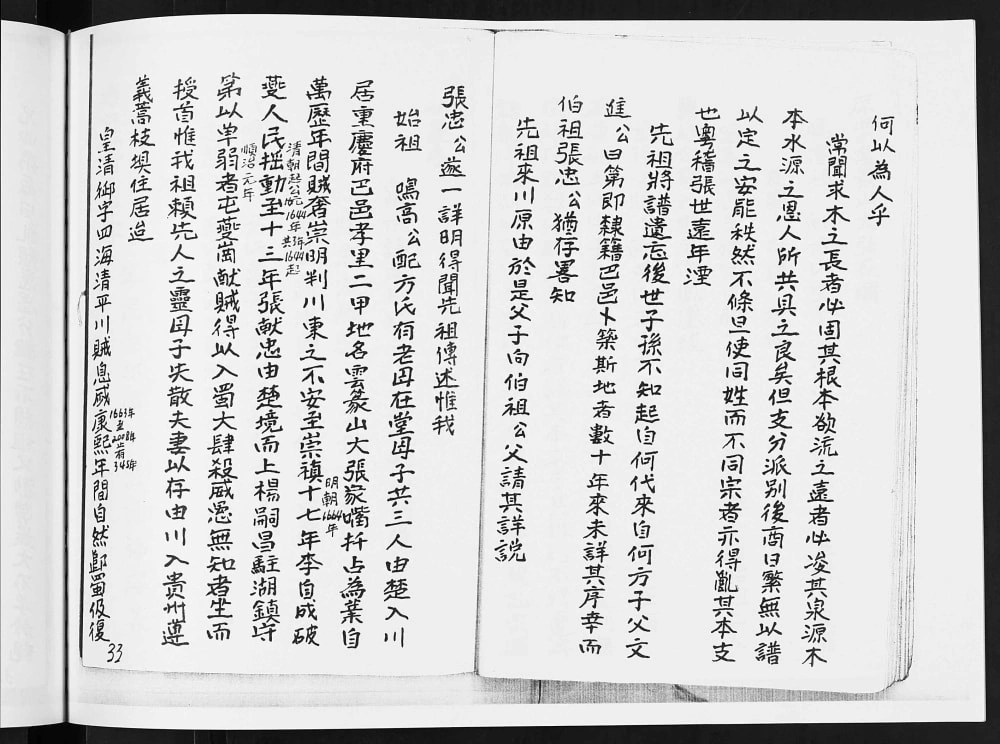 何以為人乎
常聞求木之長者必固其根本欲流之遠者必浚其泉源木
本水源之恩人所共具之良矣但支分派別後商日繁無以譜
以定之安能秩然不條旦使同姓而不同宗者亦得亂其本支
也粵稽張世遠年湮
先祖將譜遺忘後世子孫不知起自何代來自何方子父文
進公曰第即隸籍巴邑卜築斯地者數十年來未詳其序幸而
伯祖張忠公猶存畧知
先祖來川原由於是父子向伯祖公父請其詳說
張忠公遂一詳明得聞先祖傳述惟我
始祖 鳴高公配方氏有老母在堂母子共三人由楚入川
居重慶府巴邑孝里二甲地名雲篆山大張家嘴扦占為業自
萬歷年間賊奢崇明判川東之不安至崇禎十七年李自成破
明朝1664年
清朝起公元1644年
共1644起
燹人民摇動至十三年張献忠由楚境而上楊嗣昌駐湖鎮守
順治元年
第以单弱者屯夔崗献賊得以入蜀大肆殺威愚無知者坐而
授首惟我祖賴先人之靈母子失散夫妻以存由川入贵州遵
義蒿枝坝住居迨
皇清御宇四海清平川賊息威康熙年間自然鄙蜀伋復
1663年
至
2008年
止有
345年
33